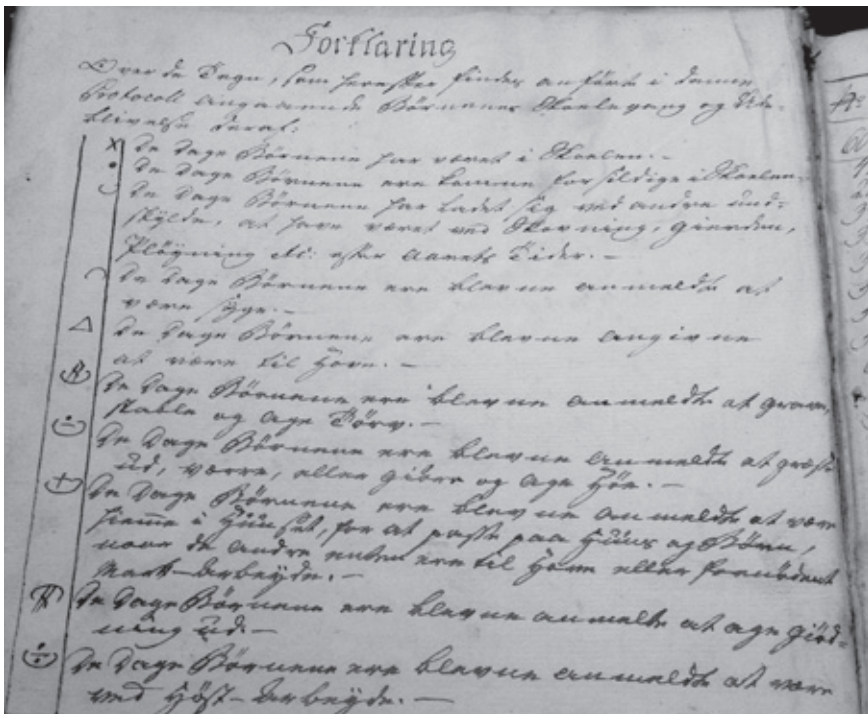 Forklaring
Over de Tegn, som herefter findes anført i denne
Protocoll angaaende Börnenes Skoelegang og Ude-
blivelse deraf:
x De Dage Börnene har været i Skoelen. -
De Dage Börnene ere komne for sildige i Skoelen.
De Dage Börnene har ladet sig ved andre und-
skylde, at have været ved Skovning, gierden,
Pløyning etc: efter Aarets Tider. -
De Dage Börnene ere blevne anmeldte at
være syge. -
Δ De Dage Börnene ere blevne angivne
at være til Hove. -
De Dage Börnene ere blevne anmeldte at grave,
stable og age Törv. -
De Dage Börnene ere blevne anmeldte at
ud, eller giöre og age Höe. -
De Dage Börnene ere blevne anmeldte at være
hiemme i Huuset, for at passe paa Huus og Börn,
naar de andre enten ere til Hove eller fornödent
Mark-Arbeyde. -
De Dage Börnene ere blevne anmeldte at age giöd-
ning ud. -
De Dage Börnene ere blevne anmeldte at være
ved Höst-Arbeyde. -